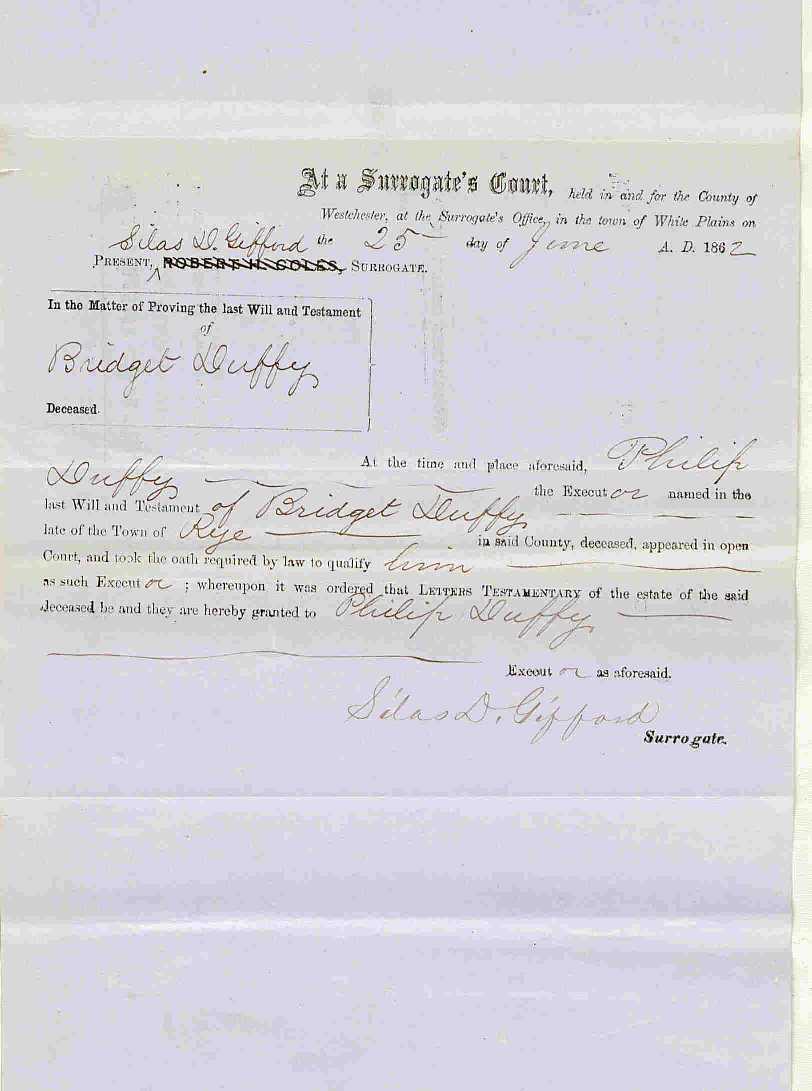 At a Surrogate's Court, held in and for the County of
Westchester, at the Surrogate's Office, in the town of White Plains on
Silas D. Gifford the 25 day of June A. D. 1862
PRESENT, ROBERT H. COLES, SURROGATE.
In the Matter of Proving the last Will and Testament
of
Bridget Duffy
Deceased.
At the time and place aforesaid, Philip
Duffy the Executor named in the
last Will and Testament of Bridget Duffy
late of the Town of Rye in said County, deceased, appeared in open
Court, and took the oath required by law to qualify him
as such Executor ; whereupon it was ordered that LETTERS TESTAMENTARY of the estate of the said
deceased be and they are hereby granted to Philip Duffy
Executor as aforesaid.
Silas D. Gifford
Surrogate.